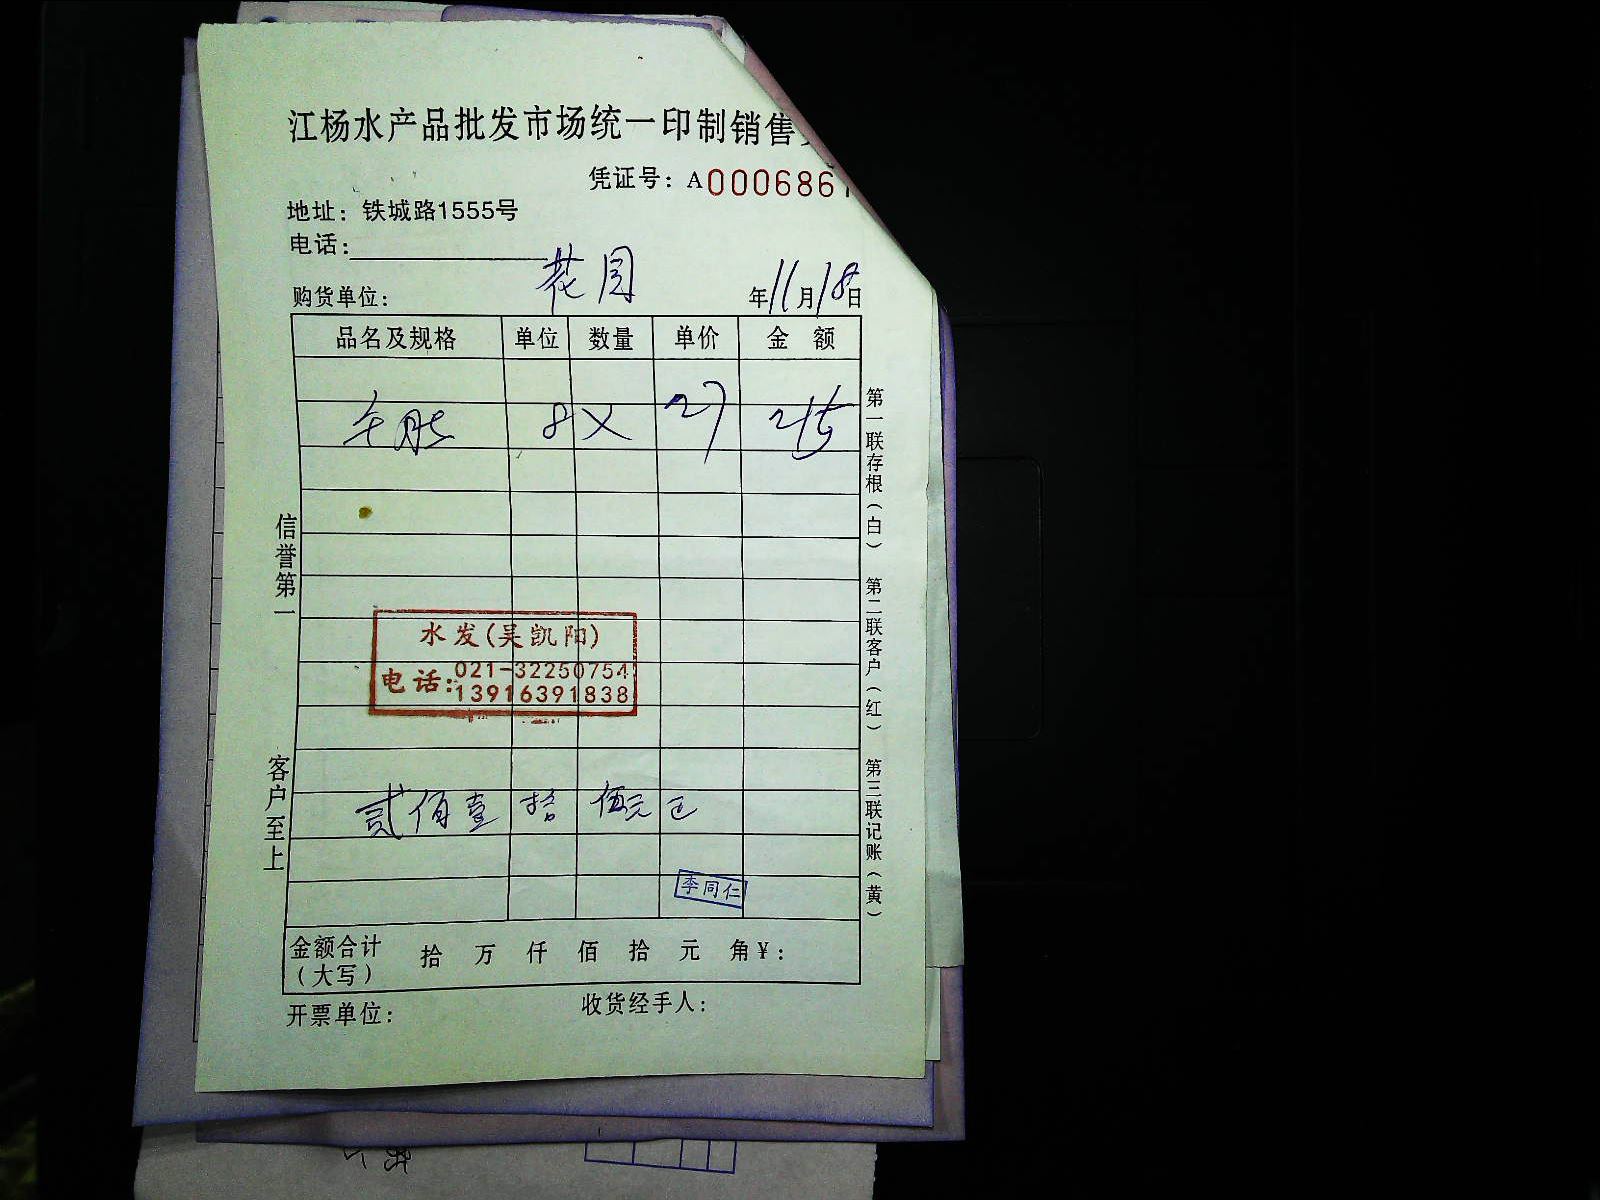 江杨水产品批发市场统一印制销售
凭证号：A0006867
地址：铁城路1555号
电话：
购货单位： 花园 年11月18日
品名及规格 单位 数量 单价 金额
牛肚 8 × 27 215
水发(吴凯阳)
电话：021-32250754
13916391838
贰佰壹拾伍元正
李同仁
金额合计（大写） 拾 万 仟 佰 拾 元 角 ¥：
开票单位： 收货经手人：
信誉第一
客户至上
第一联存根（白） 第二联客户（红） 第三联记账（黄）